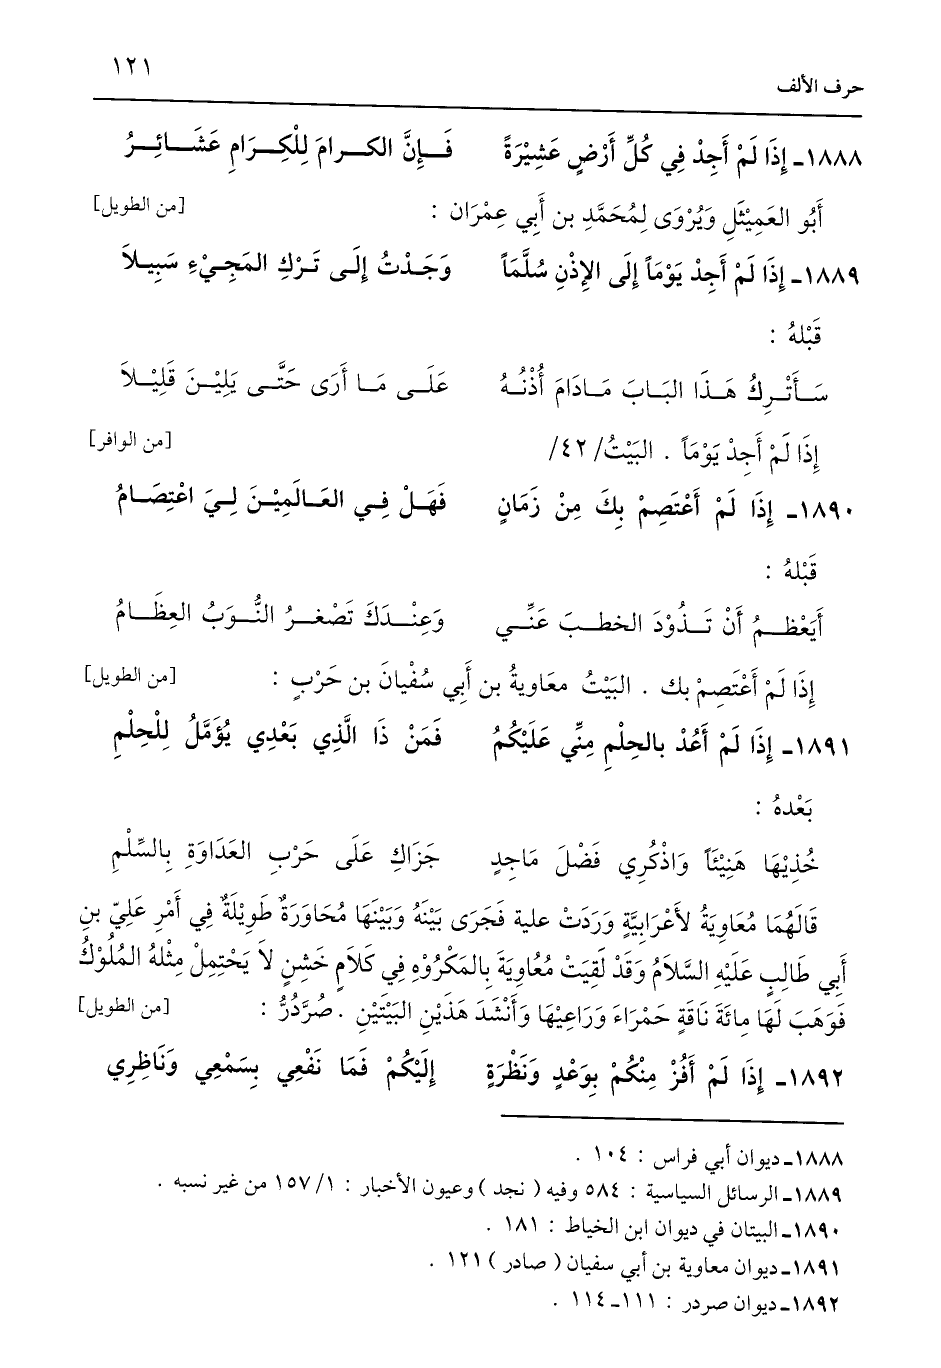 ١٢١
حرف الألف
١٨٨٨ـ إِذَا لَمْ أَجِدْ فِي كُلِّ أَرْضٍ عَشِيْرَةً فَـإِنَّ الكـرامَ لِلْكِـرَامِ عَشَـائِـرُ
أَبُو العَمِيْثَلِ وَيُرْوَى لِمُحَمَّدِ بن أَبِي عِمْرَان : [من الطويل]
١٨٨٩ـ إِذَا لَمْ أَجِدْ يَوْمَاً إِلَى الإِذْنِ سُلَّمَاً وَجَـدْتُ إِلَـى تَـرْكِ المَجِـيْءِ سَبِيـلاَ
قَبْلهُ :
سَـأَتْـرِكُ هَـذَا البَـابَ مَـادَامَ أُذْنُـهُ عَلَـى مَـا أَرَى حَتَّـى يَلِيْـنَ قَلِيْـلاَ
إِذَا لَمْ أَجِدْ يَوْمَاً . البَيْتُ/ ٤٢/ [من الوافر]
١٨٩٠ـ إِذَا لَمْ أَعْتَصِمْ بِكَ مِنْ زَمَانٍ فَهَـلْ فِـي العَـالَمِيْـنَ لِـيَ اعْتِصَـامُ
قَبْلهُ :
أَيَعْظـمُ أَنْ تَـذُوْدَ الخطـبَ عَنِّـي وَعِنْـدَكَ تَصْغـرُ النُّـوَبُ العِظَـامُ
إِذَا لَمْ أَعْتَصِمْ بك . البَيْتُ معَاويةُ بن أَبِي سُفْيانَ بن حَرْبٍ : [من الطويل]
١٨٩١ـ إِذَا لَمْ أَعُدْ بالحِلْمِ مِنِّي عَلَيْكُمُ فَمَنْ ذَا الَّذِي بَعْدِي يُؤَمَّلُ لِلْحِلْمِ
بَعْدهُ :
خُذِيْهَا هَنِيْئَاً وَاذْكُرِي فَضْلَ مَاجِدٍ جَزَاكِ عَلَى حَرْبِ العَدَاوَةِ بِالسِّلْمِ
قَالَهُمَا مُعَاوِيَةُ لأَعْرَابِيَّةٍ وَرَدَتْ علية فَجَرَى بَيْنَهُ وَبَيْنَهَا مُحَاوَرَةٌ طَوِيْلَةٌ فِي أَمْرِ عَلِيّ بنِ
أَبِي طَالِبٍ عَلَيْهِ السَّلاَمُ وَقَدْ لَقِيَتْ مُعَاوِيَةَ بِالمَكْرُوْهِ فِي كَلاَمٍ خَشِنٍ لاَ يَحْتَمِلْ مِثْلهُ المُلُوْكُ
فَوَهَبَ لَهَا مِائَةَ نَاقَةٍ حَمْرَاءَ وَرَاعِيْهَا وَأَنْشَدَ هَذَيْنِ البَيْتَيْنِ . صُرَّدُرُّ : [من الطويل]
١٨٩٢ـ إِذَا لَمْ أَفُزْ مِنْكُمْ بِوَعْدٍ وَنَظْرَةٍ إِلَيْكُمْ فَمَا نَفْعِي بِسَمْعِي وَنَاظِرِي
١٨٨٨ـ ديوان أبي فراس : ١٠٤ .
١٨٨٩ـ الرسائل السياسية : ٥٨٤ وفيه ( نجد ) وعيون الأخبار : ١/ ١٥٧ من غير نسبه .
١٨٩٠ـ البيتان في ديوان ابن الخياط : ١٨١ .
١٨٩١ـ ديوان معاوية بن أبي سفيان ( صادر ) ١٢١ .
١٨٩٢ـ ديوان صردر : ١١١ـ ١١٤ .